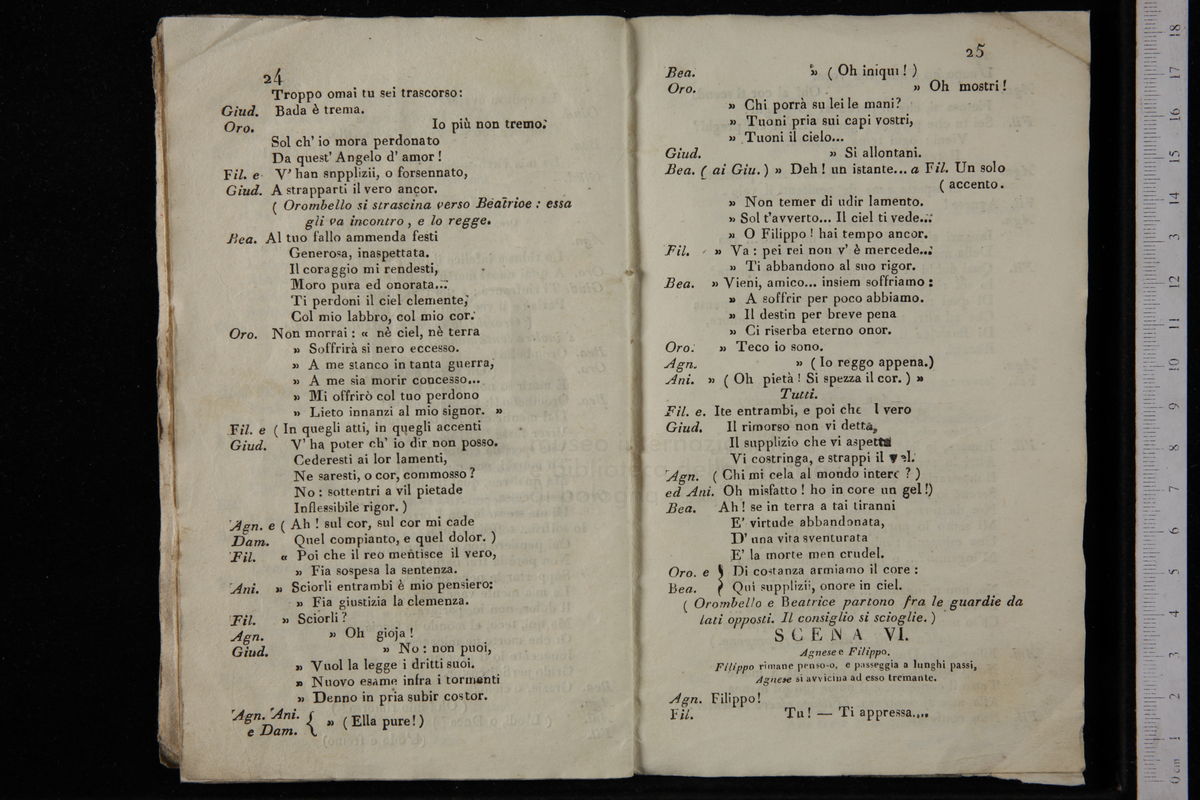 24
Troppo omai tu sei trascorso:
Giud. Bada è trema.
Oro. Io più non tremo:
Sol ch' io mora perdonato
Da quest' Angelo d' amor !
Fil. e V' han snpplizii, o forsennato,
Giud. A strapparti il vero ancor.
( Orombello si strascina verso Beatrioe : essa
gli va incontro , e lo regge.
Bea. Al tuo fallo ammenda festi
Generosa, inaspettata.
Il coraggio mi rendesti,
Moro pura ed onorata...
Ti perdoni il ciel clemente,
Col mio labbro, col mio cor.
Oro. Non morrai : « nè ciel, nè terra
» Soffrirà si nero eccesso.
» A me stanco in tanta guerra,
» A me sia morir concesso...
» Mi offrirò col tuo perdono
» Lieto innanzi al mio signor. »
Fil. e ( In quegli atti, in quegli accenti
Giud. V' ha poter ch' io dir non posso.
Cederesti ai lor lamenti,
Ne saresti, o cor, commosso ?
No : sottentri a vil pietade
Inflessibile rigor. )
Agn. e ( Ah ! sul cor, sul cor mi cade
Dam. Quel compianto, e quel dolor. )
Fil. « Poi che il reo mentisce il vero,
» Fia sospesa la sentenza.
Ani. » Sciorli entrambi è mio pensiero:
» Fia giustizia la clemenza.
Fil. » Sciorli ?
Agn. » Oh gioja !
Giud. » No : non puoi,
» Vuol la legge i dritti suoi.
» Nuovo esame infra i tormenti
» Denno in pria subir costor.
Agn. Ani. e Dam. { » ( Ella pure! )
25
Bea. » ( Oh iniqui ! )
Oro. » Oh mostri !
» Chi porrà su lei le mani?
» Tuoni pria sui capi vostri,
» Tuoni il cielo...
Giud. » Si allontani.
Bea. ( ai Giu. ) » Deh ! un istante... a Fil. Un solo
( accento.
» Non temer di udir lamento.
» Sol t'avverto... Il ciel ti vede...
» O Filippo ! hai tempo ancor.
Fil. » Va : pei rei non v' è mercede...
» Ti abbandono al suo rigor.
Bea. » Vieni, amico... insiem soffriamo :
» A soffrir per poco abbiamo.
» Il destin per breve pena
» Ci riserba eterno onor.
Oro. » Teco io sono.
Agn. » ( Io reggo appena.)
Ani. » ( Oh pietà ! Si spezza il cor. ) »
Tutti.
Fil. e. Ite entrambi, e poi che l vero
Giud. Il rimorso non vi detta,
Il supplizio che vi aspetta
Vi costringa, e strappi il vel.
Agn. ( Chi mi cela al mondo intero ? )
ed Ani. Oh misfatto ! ho in core un gel !)
Bea. Ah ! se in terra a tai tiranni
E' virtude abbandonata,
D' una vita sventurata
E' la morte men crudel.
Oro. e } Di costanza armiamo il core :
Bea. } Qui supplizii, onore in ciel.
( Orombello e Beatrice partono fra le guardie da
lati opposti. Il consiglio si scioglie. )
SCENA VI.
Agnese e Filippo.
Filippo rimane penso-o, e passeggia a lunghi passi,
Agnese si avvicina ad esso tremante.
Agn. Filippo !
Fil. Tu ! — Ti appressa....
0 cm 1 2 3 4 5 6 7 8 9 10 11 12 13 14 15 16 17 18